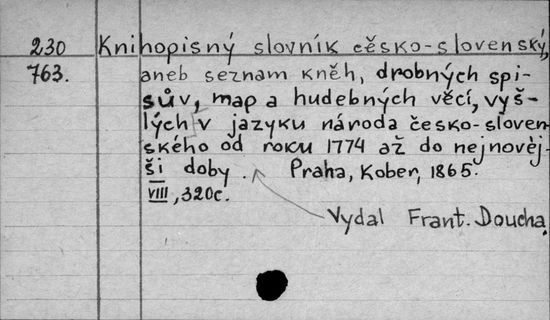 230 Knihopisný slovník cěsko-slovenský,
763. aneb seznam kněh, drobných spi-
sův, map a hudebných věcí, vyš-
lých v jazyku národa česko-sloven-
ského od roku 1774 až do nejnověj-
ši doby. Praha, Kober, 1865.
VIII, 320c.
Vydal Frant. Doucha.